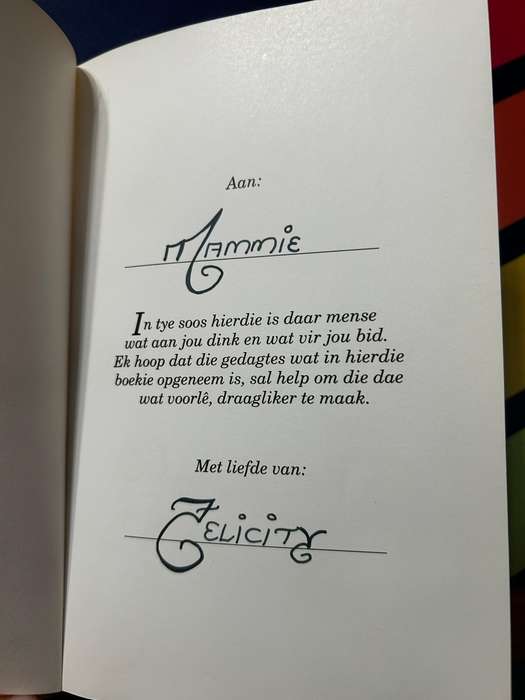 Aan:
Mammie
In tye soos hierdie is daar mense
wat aan jou dink en wat vir jou bid.
Ek hoop dat die gedagtes wat in hierdie
boekie opgeneem is, sal help om die dae
wat voorlê, draagliker te maak.
Met liefde van:
Felicity